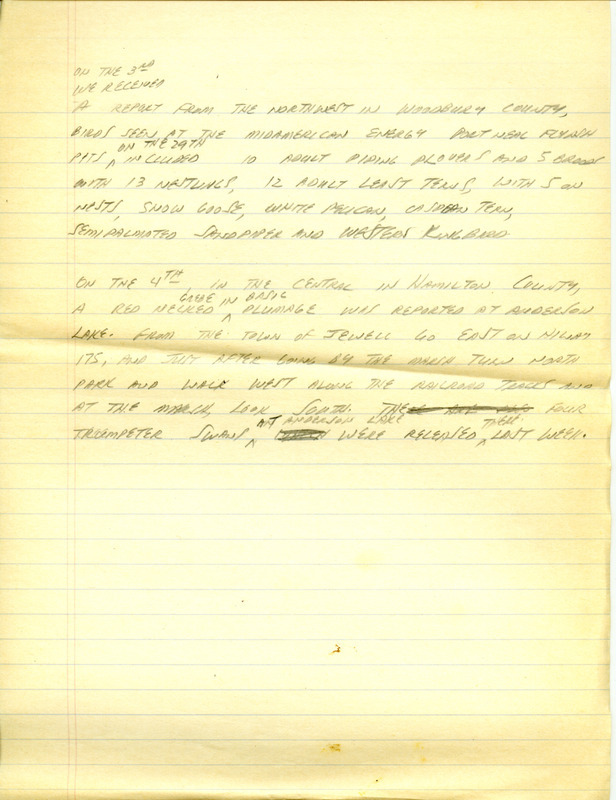 ON THE 3RD
WE RECEIVED
A REPORT FROM THE NORTHWEST IN WOODBURY COUNTY,
BIRDS SEEN AT THE MIDAMERICAN ENERGY PORT NEAL FLYASH
ON THE 29TH
PITS ^ INCLUDED 10 ADULT PIPING PLOVERS AND 5 BROODS
WITH 13 NESTLINGS, 12 ADULT LEAST TERNS, WITH 5 ON
NESTS, SNOW GOOSE, WHITE PELICAN, CASPEAN TERN,
SEMIPALMATED SANDPIPER AND WESTERN KINGBIRD
ON THE 4TH, IN THE CENTRAL IN HAMILTON COUNTY,
GREBE IN BASIC
A RED NECKED ^ PLUMAGE WAS REPORTED AT ANDERSON
LAKE. FROM THE TOWN OF JEWELL GO EAST ON HIWAY
175, AND JUST AFTER GOING BY THE MARSH TURN NORTH
PARK AND WALK WEST ALONG THE RAILROAD TRACKS AND
AT THE MARSH, LOOK SOUTH. THE FOUR
AT ANDERSON LAKE THERE
TRUMPETER SWANS ^ WERE RELEASED ^ LAST WEEK.